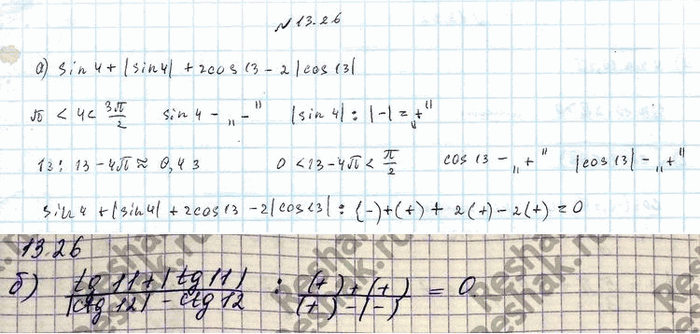 N 13.26
а) sin 4 + |sin 4| + 2cos 13 - 2|cos 13|
π < 4 < 3π/2   sin 4 - „-"   |sin 4| : |-| = „+"
13: 13 - 4π ≈ 0,43   0 < 13 - 4π < π/2   cos 13 - „+"   |cos 13| - „+"
sin 4 + |sin 4| + 2cos 13 - 2|cos 13| : (-) + (+) + 2(+) - 2(+) = 0
13.26
б) (tg 11 + |tg 11|) / (|ctg 12| - ctg 12) : ((+) + (+)) / ((+) - (-)) = 0
Reshak.ru